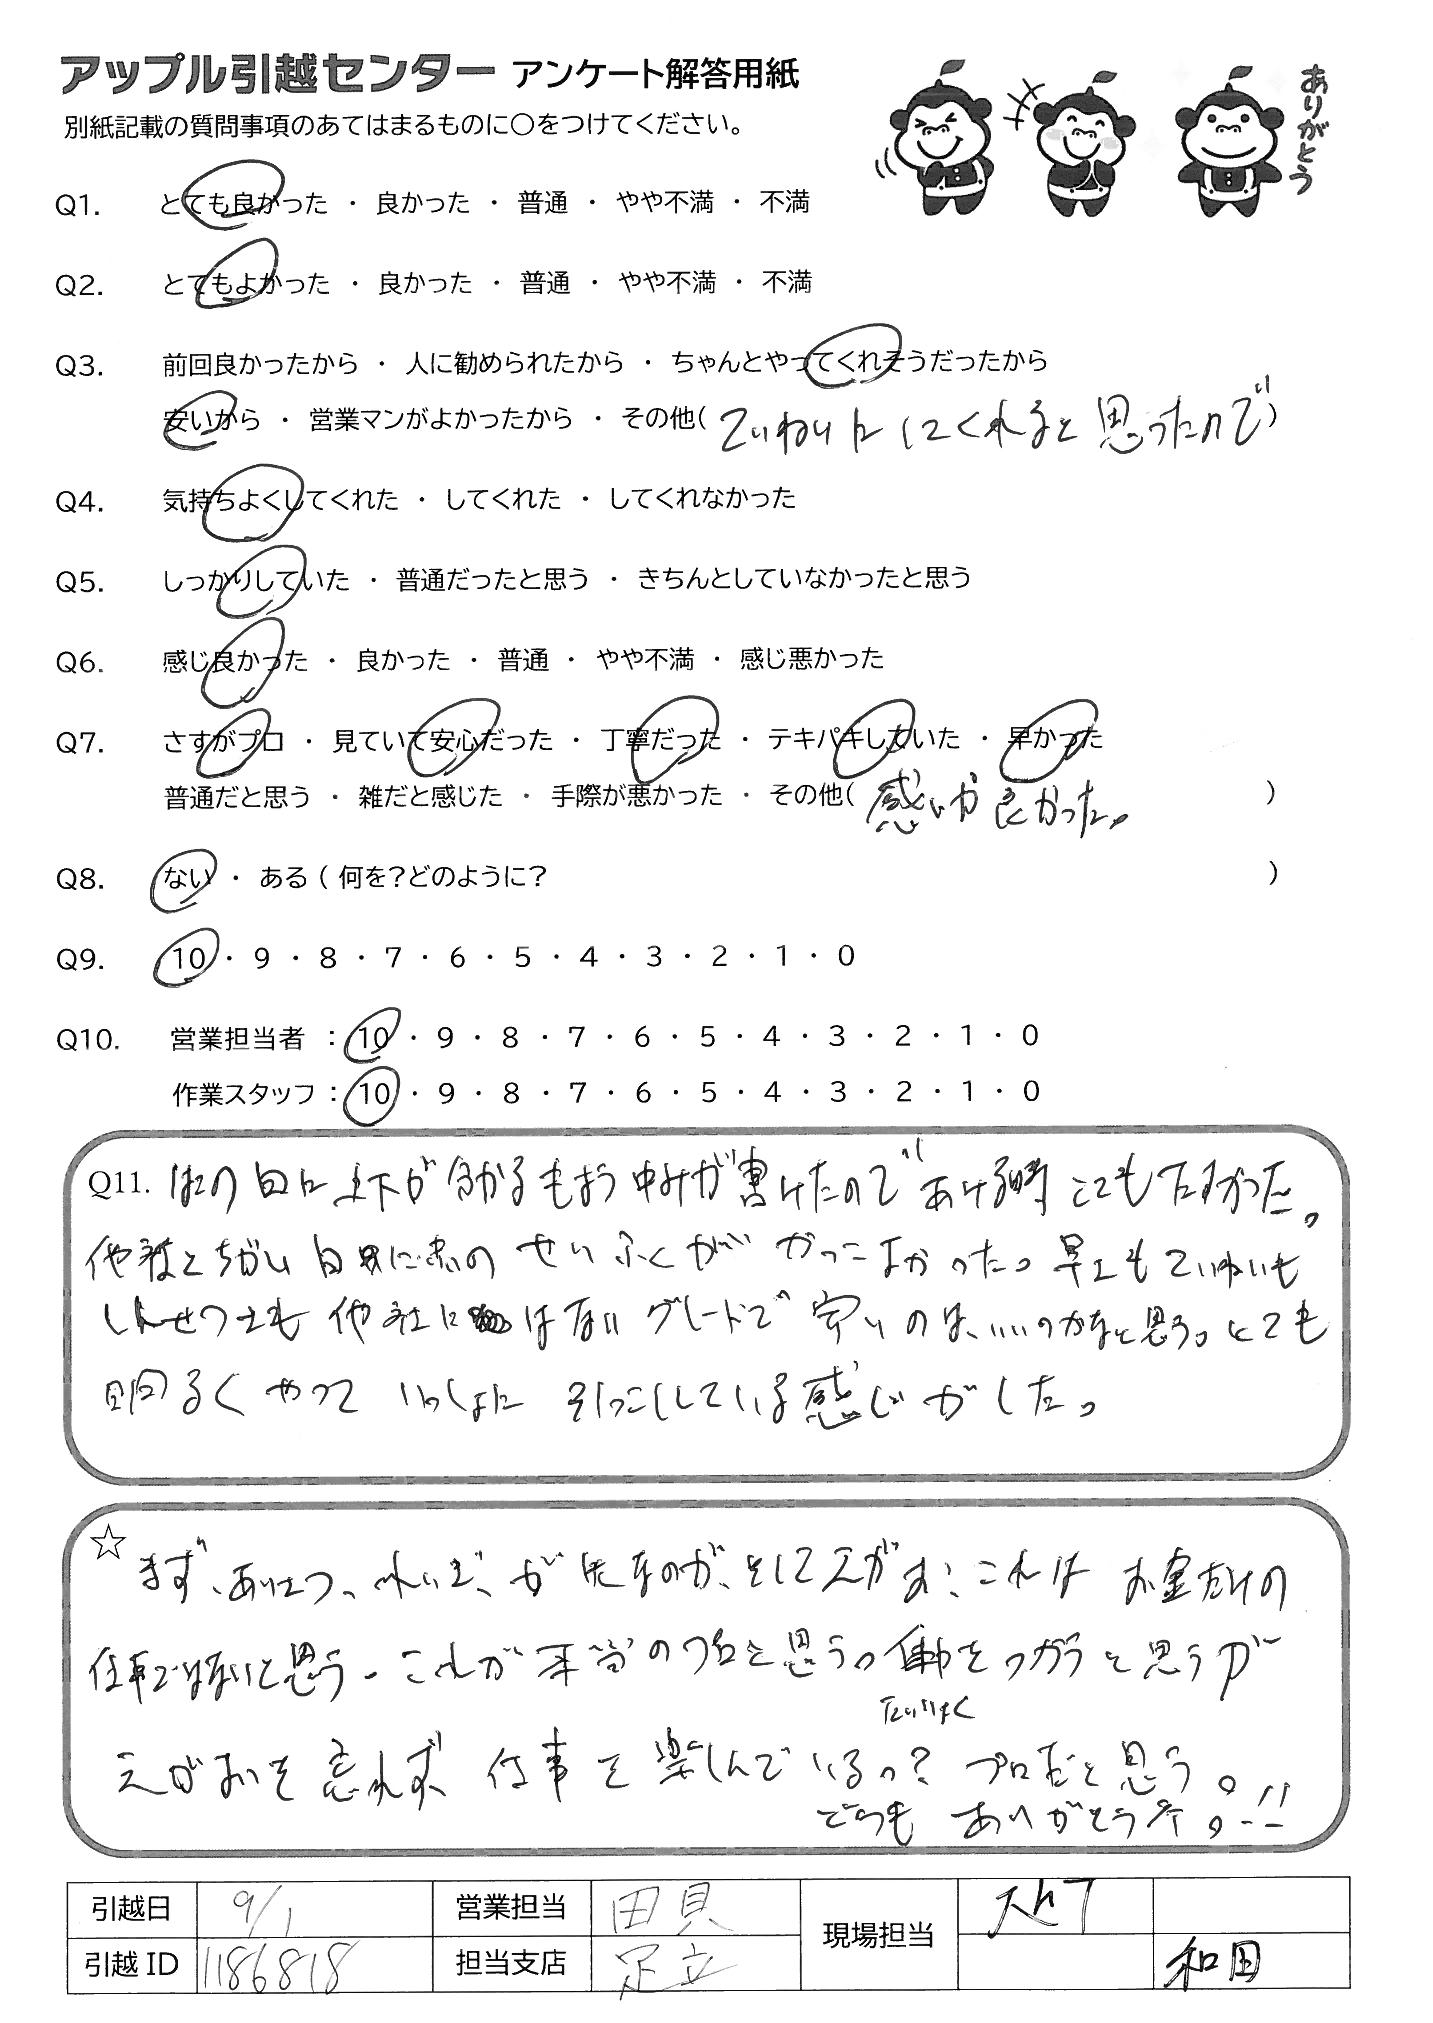 アップル引越センター アンケート解答用紙
ありがとう
別紙記載の質問事項のあてはまるものに〇をつけてください。
Q1. とても良かった ・ 良かった ・ 普通 ・ やや不満 ・ 不満
Q2. とてもよかった ・ 良かった ・ 普通 ・ やや不満 ・ 不満
Q3. 前回良かったから ・ 人に勧められたから ・ ちゃんとやってくれそうだったから
安いから ・ 営業マンがよかったから ・ その他( ていねいにしてくれると思ったので )
Q4. 気持ちよくしてくれた ・ してくれた ・ してくれなかった
Q5. しっかりしていた ・ 普通だったと思う ・ きちんとしていなかったと思う
Q6. 感じ良かった ・ 良かった ・ 普通 ・ やや不満 ・ 感じ悪かった
Q7. さすがプロ ・ 見ていて安心だった ・ 丁寧だった ・ テキパキしていた ・ 早かった
普通だと思う ・ 雑だと感じた ・ 手際が悪かった ・ その他( 感じが良かった。 )
Q8. ない ・ ある ( 何を?どのように? )
Q9. 10 ・ 9 ・ 8 ・ 7 ・ 6 ・ 5 ・ 4 ・ 3 ・ 2 ・ 1 ・ 0
Q10. 営業担当者 : 10 ・ 9 ・ 8 ・ 7 ・ 6 ・ 5 ・ 4 ・ 3 ・ 2 ・ 1 ・ 0
作業スタッフ : 10 ・ 9 ・ 8 ・ 7 ・ 6 ・ 5 ・ 4 ・ 3 ・ 2 ・ 1 ・ 0
Q11. はこの 上下が分かるもよう 中みが書けたので あける時 とてもたすかった。
他社とちがい 白 に赤の せいふくが かっこよかった。早さもていねいも
しんせつさも 他社に はないグレードで 安いのは、いいのかなと思う。とても
明るくやって いっしょに 引っこししている感じがした。
☆ まず、あいさつ、れいぎ、が 先なのが、そしてえがお、これは お金だけの
仕事ではないと思う。これが本当のプロと思う。働 をつかうと思うが
たいりょく
えがおを忘れず、仕事を楽しんでいるの? プロだと思う。
どうも ありがとう 。!!
引越日 9/1 営業担当 田貝 現場担当
引越 ID 1186818 担当支店 足立 和田